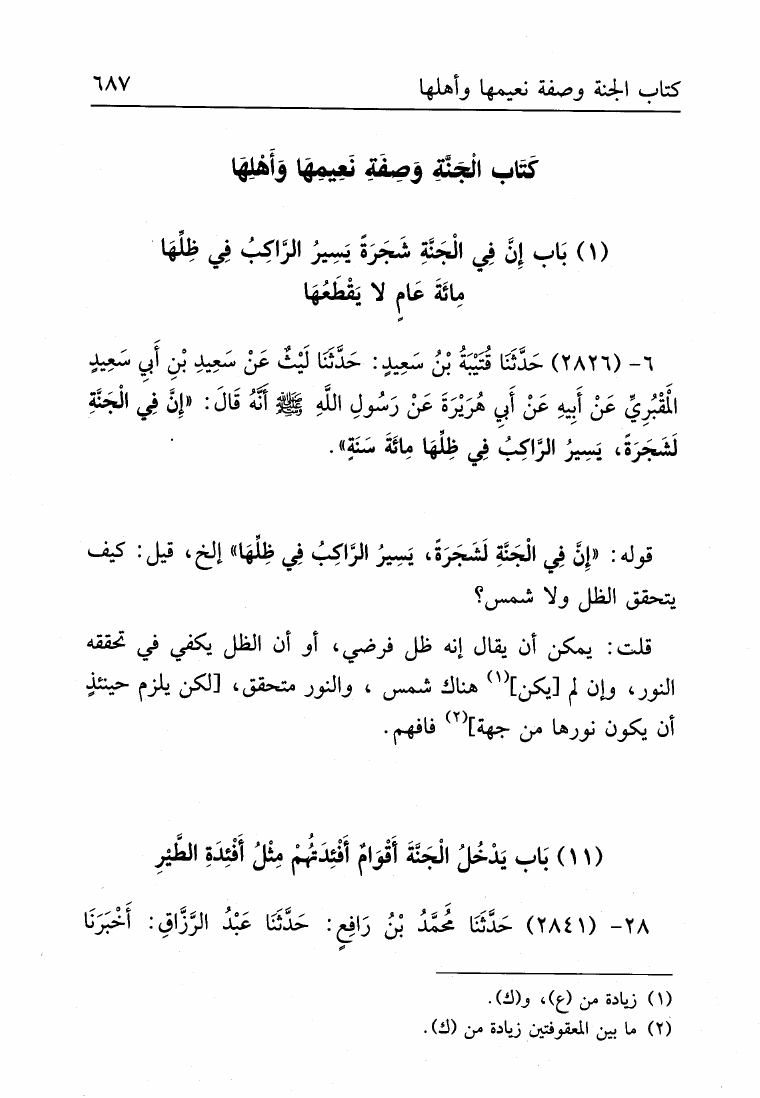 كتاب الجنة وصفة نعيمها وأهلها ٦٨٧
كَتَاب الْجَنَّةِ وَصِفَةِ نَعِيمِهَا وَأَهْلِهَا
(١) بَاب إِنَّ فِي الْجَنَّةِ شَجَرَةً يَسِيرُ الرَّاكِبُ فِي ظِلِّهَا
مِائَةَ عَامٍ لا يَقْطَعُهَا
٦- (٢٨٢٦) حَدَّثَنَا قُتَيْبَةُ بْنُ سَعِيدٍ: حَدَّثَنَا لَيْثٌ عَنْ سَعِيدِ بْنِ أَبِي سَعِيدٍ
الْمَقْبُرِيِّ عَنْ أَبِيهِ عَنْ أَبِي هُرَيْرَةَ عَنْ رَسُولِ اللَّهِ ﷺ أَنَّهُ قَالَ: «إِنَّ فِي الْجَنَّةِ
لَشَجَرَةً، يَسِيرُ الرَّاكِبُ فِي ظِلِّهَا مِائَةَ سَنَةٍ».
قوله: «إِنَّ فِي الْجَنَّةِ لَشَجَرَةً، يَسِيرُ الرَّاكِبُ فِي ظِلِّهَا» إلخ، قيل: كيف
يتحقق الظل ولا شمس؟
قلت: يمكن أن يقال إنه ظل فرضي، أو أن الظل يكفي في تحققه
النور، وإن لم [يكن](١) هناك شمس ، والنور متحقق، [لكن يلزم حينئذٍ
أن يكون نورها من جهة](٢) فافهم.
(١١) بَاب يَدْخُلُ الْجَنَّةَ أَقْوَامٌ أَفْئِدَتُهُمْ مِثْلُ أَفْئِدَةِ الطَّيْرِ
٢٨- (٢٨٤١) حَدَّثَنَا مُحَمَّدُ بْنُ رَافِعٍ: حَدَّثَنَا عَبْدُ الرَّزَّاقِ: أَخْبَرَنَا
(١) زيادة من (ع)، و(ك).
(٢) ما بين المعقوفتين زيادة من (ك).